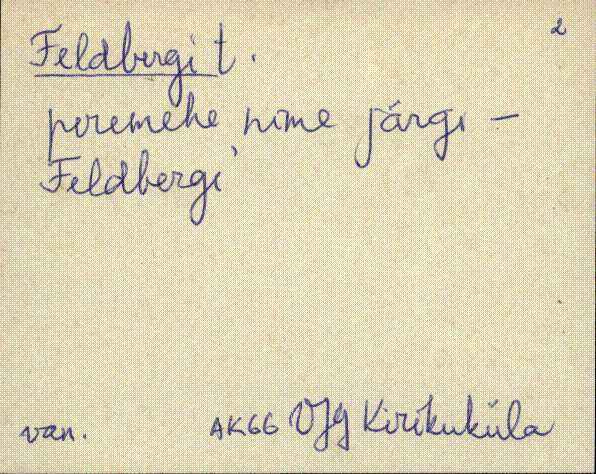 2
Feldbergi t.
peremehe nime järgi –
Feldbergi
van. AK66 VJg Kirikuküla